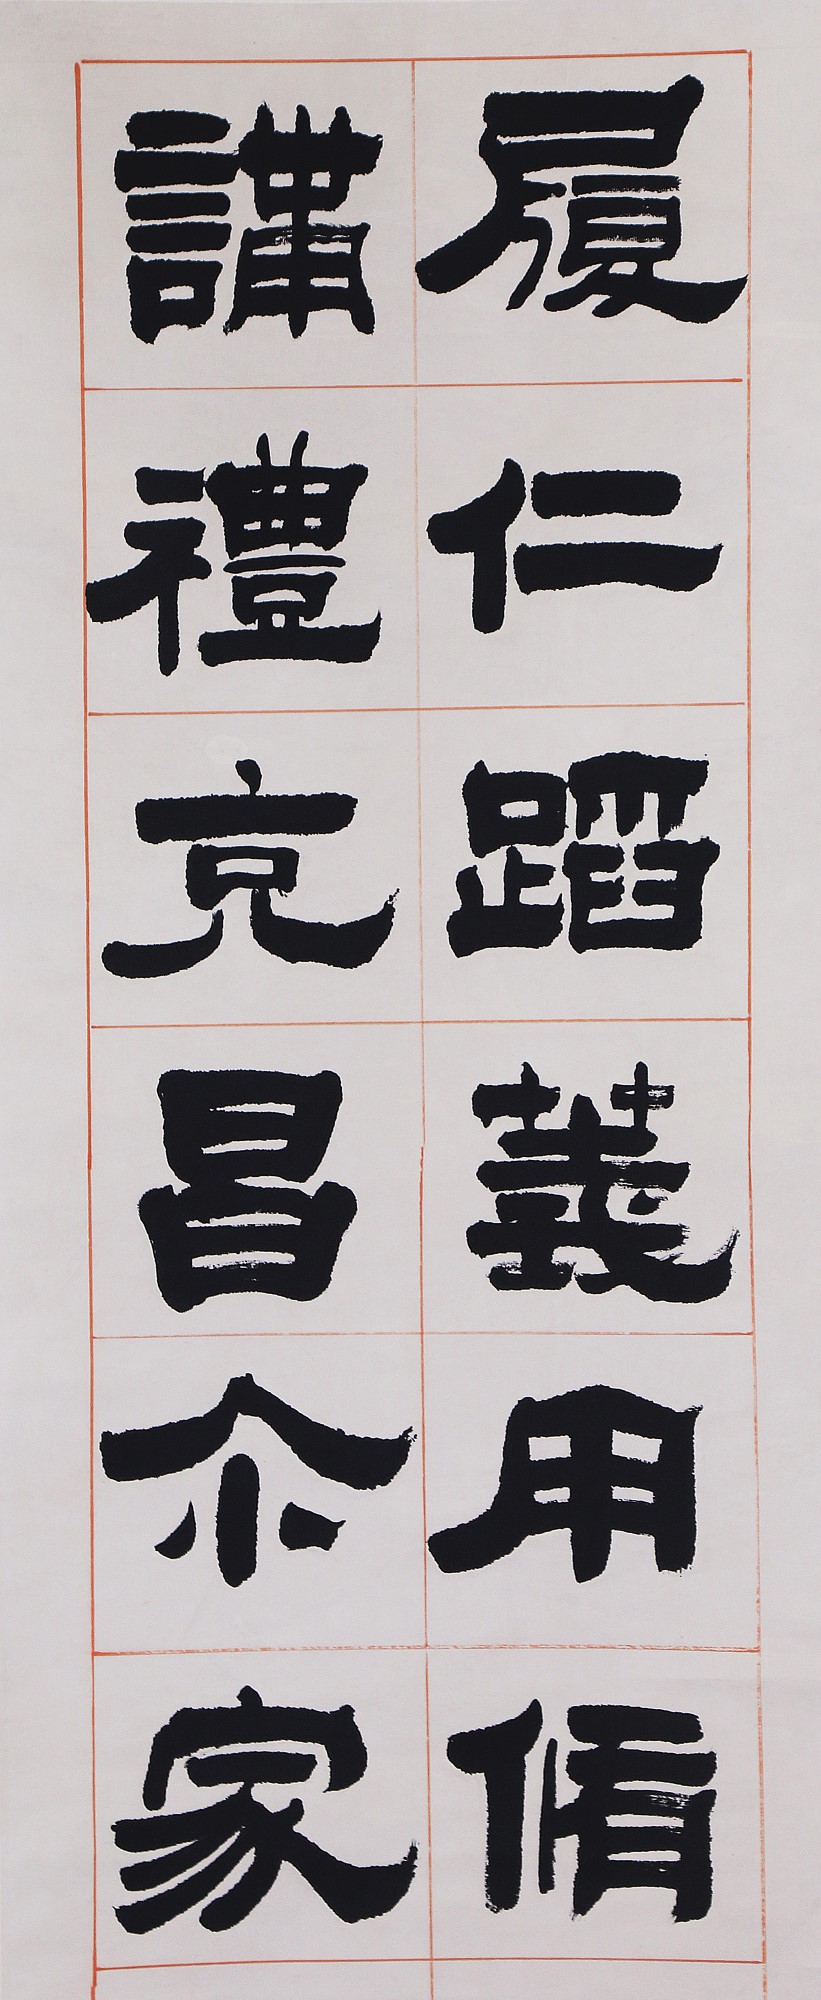 履仁蹈義用脩
講禮克昌尒家